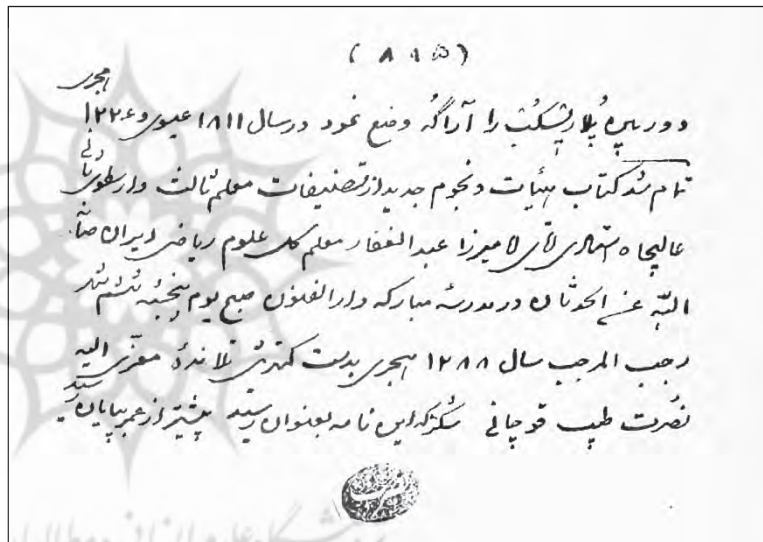 (۸۱۵)
هجری
دوربین پُلارِیسکُپ را آراگُه وضع نمود در سال ۱۸۱۱ عیسوی و ۱۲۲۶
تمام شد کتاب هیئات و نجوم جدید از تصنیفات معلم ثالث و ارسطوی ثانی
عالیجاه استادی لآلی لا میرزا عبدالغفار معلم کل علوم ریاضی ایران صانه
اللّه عن الحدثان در مدرسهٔ مبارکه دارالفنون صبح یوم پنجشنبه ششم شهر
رجب المرجب سال ۱۲۸۸ هجری بدست کمترین تلامذهٔ معزّی الیه
نصرت طبیب قوچانی شکر که این نامه بعنوان رسید پیشتر از عمر بپایان رسید